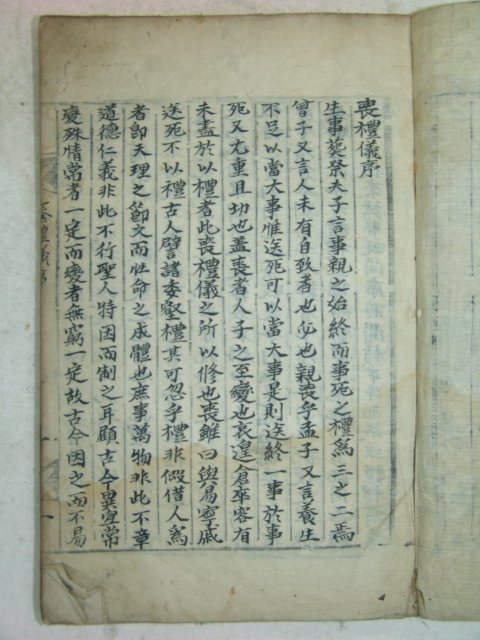 喪禮儀序
生事葬祭夫子言事親之始終而事死之禮爲三之二焉
曾子又言人未有自致者也必也親喪乎孟子又言養生
不足以當大事惟送死可以當大事是則送終一事於事
死又尤重且切也盖喪者人子之至變也哀遑倉卒容有
未盡於以禮者此喪禮儀之所以修也喪雖曰與易寧戚
送死不以禮古人譬諸委壑禮其可忽乎禮非假借人爲
者卽天理之節文而性命之成體也庶事萬物非此不章
道德仁義非此不行聖人特因而制之耳顧古今異宜常
變殊情常者一定而變者無窮一定故古今因之而不易
喪禮儀序
一